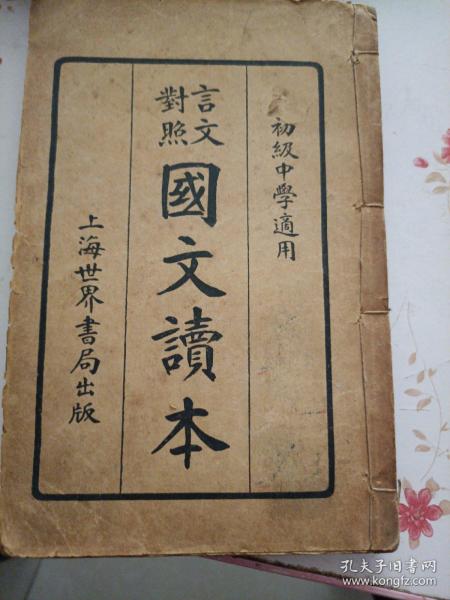 初級中學適用
言文
對照
國文讀本
上海世界書局出版
孔夫子旧书网
www.kongfz.com